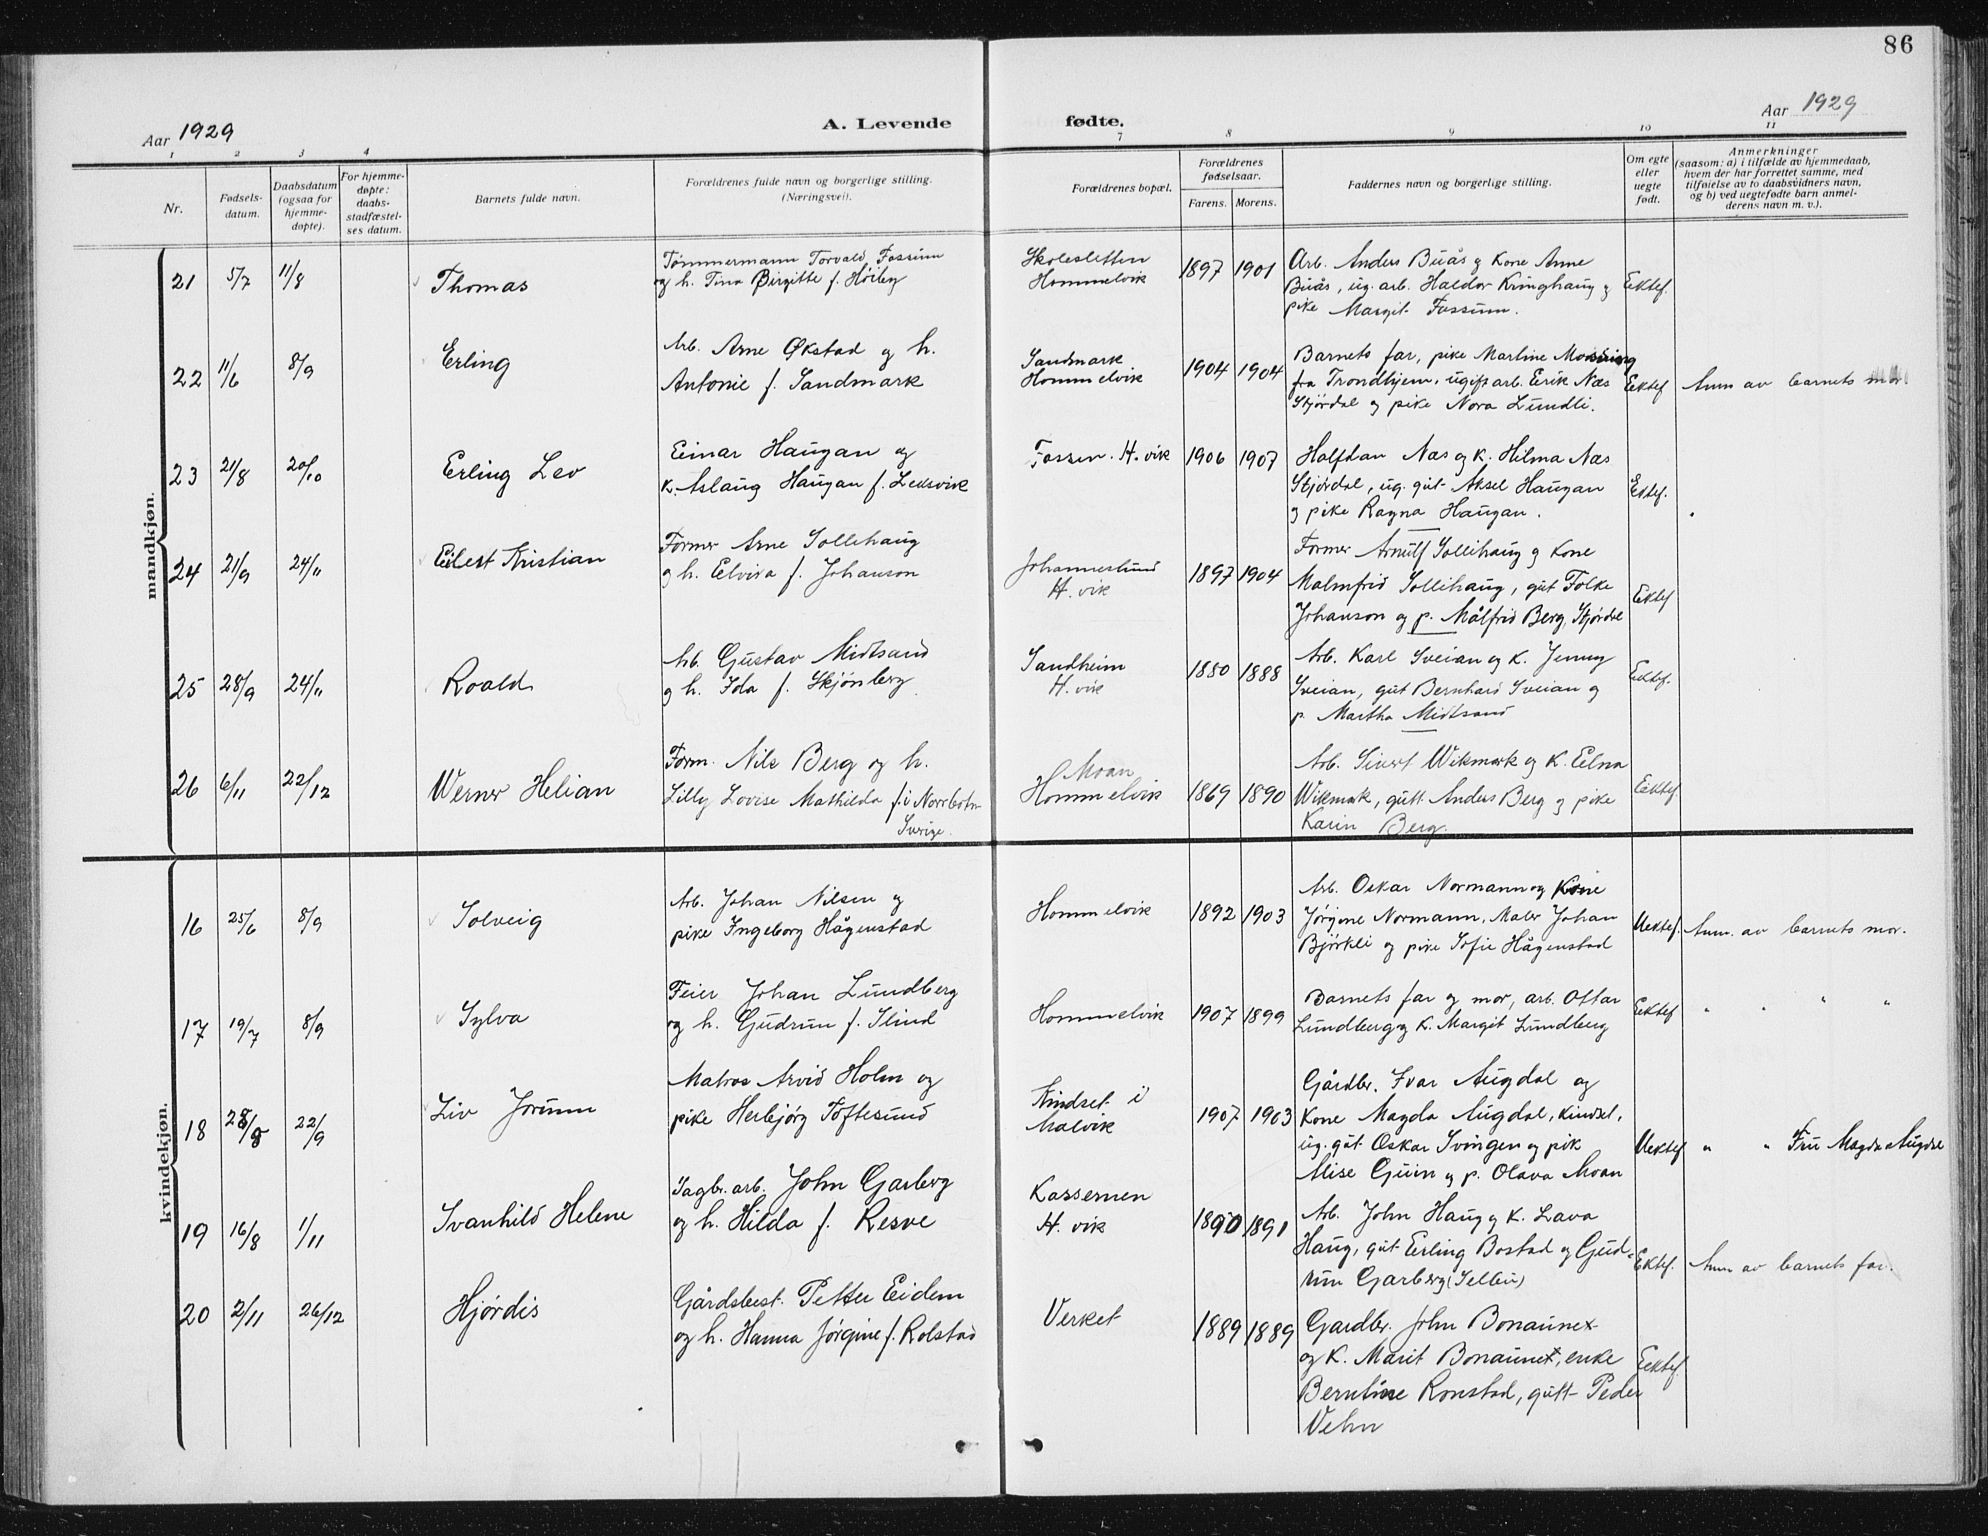 86
Aar 1929
A. Levende fødte.
Aar 1929
1 2 3 4 7 8 9 10 11
Nr.
Fødsels-
datum.
Daabsdatum
(ogsaa for
hjemme-
døpte).
For hjemme-
døpte:
daabs-
stadfæstel-
ses datum.
Barnets fulde navn.
Forældrenes fulde navn og borgerlige stilling.
(Næringsvei).
Forældrenes bopæl.
Forældrenes
fødselsaar.
Farens. Morens.
Faddernes navn og borgerlige stilling.
Om egte
eller
uegte
født.
Anmerkninger
(saasom: a) i tilfælde av hjemmedaab,
hvem der har forrettet samme, med
tilføielse av to daabsvidners navn,
og b) ved uegtefødte barn anmel-
derens navn m. v.).
mandkjøn.
21 5/7 11/8 Thomas
Tømmermann Torvald Fossum
og h. Tina Birgitte f. Høiby
Skolesletten
Hommelvik
1897 1901
Arb. Anders Buås g Kone Anne
Buås, ug. arb. Haldor Kringhaug g
pike Margit Fossum.
Ektef.
22 11/6 8/9 Erling
Arb. Arne Økstad og h.
Antonie f. Sandmark
Sandmark
Hommelvik
1904 1904
Barnets far, pike Martine
fra Trondhjem, ugift arb. Erik Næs
Stjørdal g pike Nora Lundli.
Ektef
Anm av barnets mor
23 21/8 20/10 Erling Lev
Einar Haugan og
k. Aslaug Haugan f. Leksvik
Fossen. H.vik
1906 1907
Halfdan Næs og K. Hilma Næs
Stjørdal, ug. gut Aksel Haugan
g pike Ragna Haugan.
Ektef.
24 21/9 24/11 Eilert Kristian
Former Arne Sollihaug
g h. Elvira f. Johanson
Johanneslund
H.vik
1897 1904
Former Arnulf Sollihaug g Kone
Malmfrid Sollihaug, gut Folke
Johanson og p. Målfrid Berg, Stjørdal
Ektef
25 28/9 24/11 Roald
Arb. Gustav Midtsand
g h. Ida f. Skjønberg
Sandheim
H.vik
1880 1888
Arb. Karl Sveian og K. Jenny
Sveian, gut Bernhard Sveian g
p. Martha Midtsand
Ektef.
26 6/11 22/12 Werner Helian
Form. Nils Berg og h.
Lilly Lovise Mathilda f. i Norrbotn
Sverige.
Moan
Hommelvik
1869 1890
Arb. Sivert Wikmark og K. Elna
Wikmark, gutt Anders Berg g pike
Karin Berg.
Ektef.
kvindekjøn.
16 25/6 8/9 Solveig
Arb. Johan Nilsen og
pike Ingeborg Hågenstad
Hommelvik
1892 1903
Arb. Oskar Normann og Kone
Jørgine Normann, Maler Johan
Bjørkli og pike Sofie Hågenstad
Uektef.
Anm. av barnets mor.
17 19/7 8/9 Sylva
Feier Johan Lundberg
og h. Gudrun f. Slind
Hommelvik
1907 1899
Barnets far og mor, arb. Ottar
Lundberg g K. Margit Lundberg
Ektef
" " " "
18 28/8 22/9 Liv Jorunn
Matros Arvid Holm og
pike Herbjørg Toftesund
Kindset i
Malvik
1907 1903
Gårdbr. Ivar Augdal og
Kone Magda Augdal, Kindset,
ug. gut Oskar Svingen og pik
Alise Guin g p. Olava Moan
Uektef
" " Fru Magda Augdal
19 16/8 1/11 Svanhild Helene
Sagbr. arb. John Garberg
og h. Hilda f. Resve
Kassernen
H. vik
1890 1891
Arb. John Haug g K. Lava
Haug, gut Erling Bostad og Gud-
run Garberg (Selbu)
Ektef.
Anm av barnets far.
20 2/11 26/12 Hjørdis
Gårdsbest. Petter Eidem
og h. Hanna Jørgine f. Rolstad
Verket
1889 1889
Gardbr. John Bonaunet
og K. Marit Bonaunet, enke
Berntine Ronstad, gutt Peder
Vehn
Ektef.